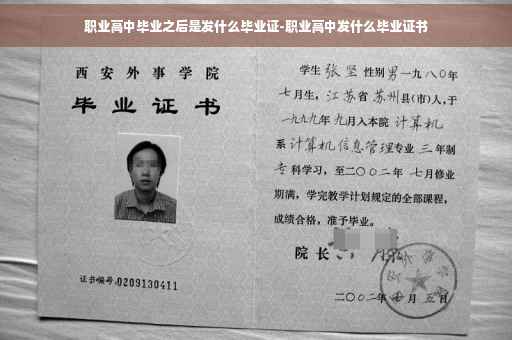 职业高中毕业之后是发什么毕业证-职业高中发什么毕业证书
西安外事学院
毕业证书
证书编号:0209130411
学生 张坚 性别男一九八〇年
七月生，江苏省苏州县(市)人,于
一九九九年九月入本院 计算机
系计算机信息管理专业 三 年制
专科学习，至二〇〇二年 七月修业
期满，学完教学计划规定的全部课程，
成绩合格，准予毕业。
院长
二〇〇二年 月 五日